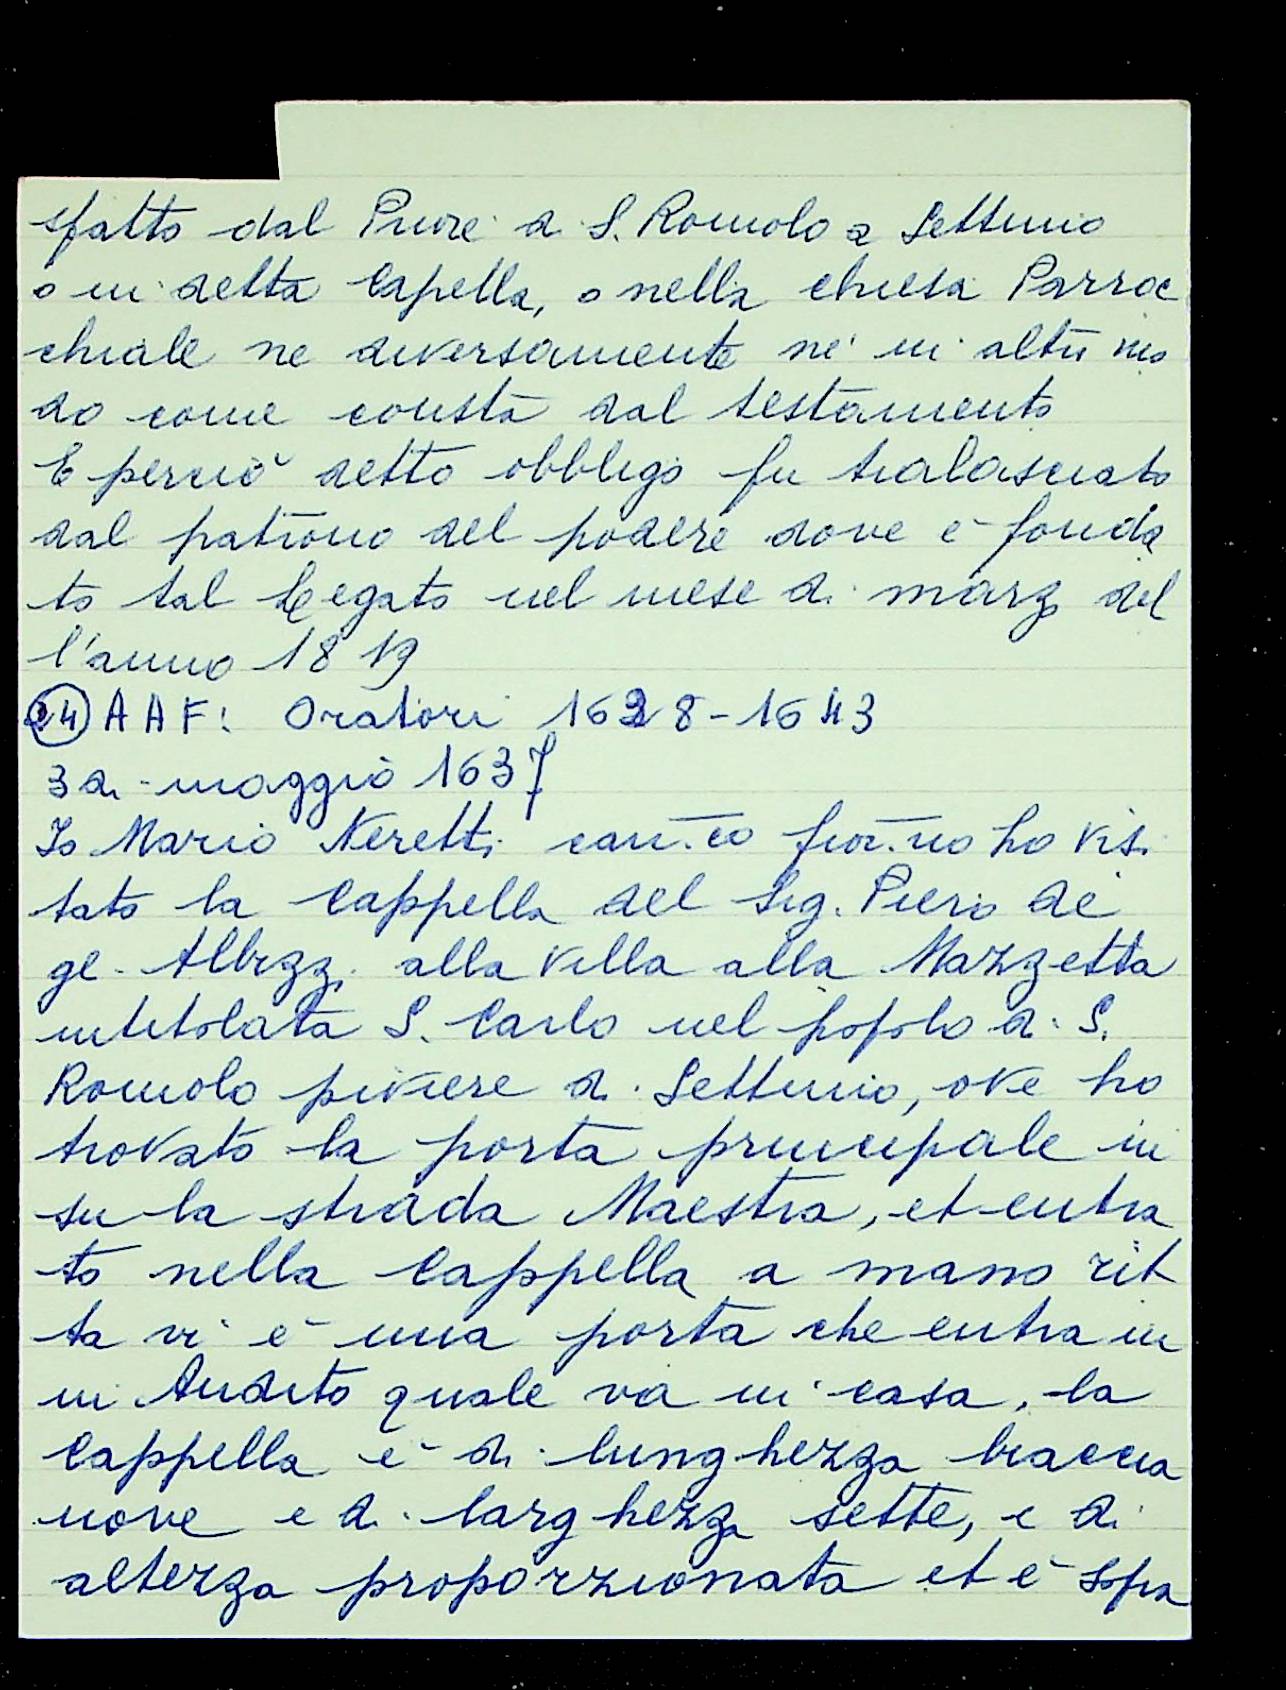 sfatto dal Priore di S. Romolo a Settimo
o in detta Capella, o nella chiesa Parroc
chiale ne diversamente ne' in altri mo
do come consta dal testamento
E perciò detto obbligo fu tralasciato
dal patrono del podere dove è fonda
to tal Legato nel mese di marzo del
l'anno 1819
24 AAF: Oratori 1628-1643
3 di maggio 1637
Io Mario Neretti can.co fior.no ho visi
tato la Cappella del Sig. Piero de
gl. Albizzi alla Villa alla Mazzetta
intitolata S. Carlo nel popolo di S.
Romolo piviere di Settimo, ove ho
trovato la porta principale in
su la strada Maestra, et entra
to nella Cappella a mano rit
ta vi è una porta che entra in
in Andito quale va in casa, la
Cappella è di lunghezza braccia
nove e di larghezza sette, e di
altezza proporzionata et è sopra